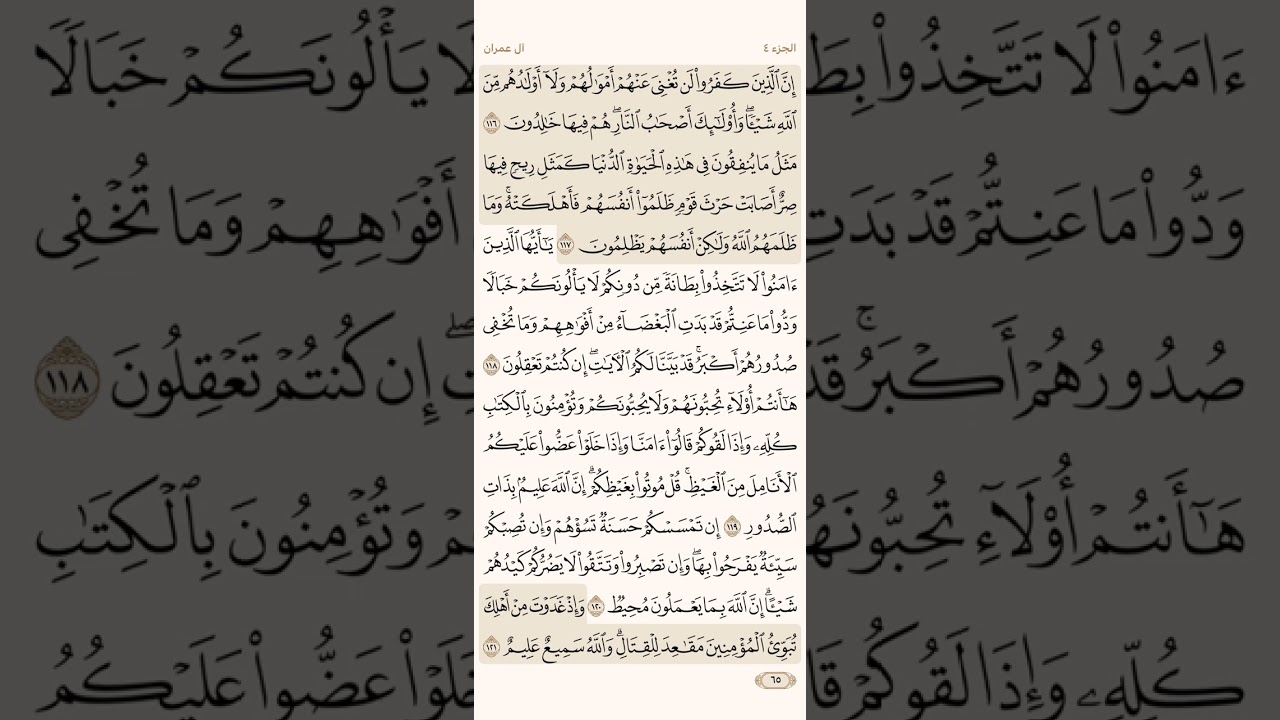 الجزء ٤
آل عمران
إِنَّ ٱلَّذِينَ كَفَرُوا۟ لَن تُغْنِىَ عَنْهُمْ أَمْوَٰلُهُمْ وَلَآ أَوْلَـٰدُهُم مِّنَ
ٱللَّهِ شَيْـًٔا ۖ وَأُو۟لَـٰٓئِكَ أَصْحَـٰبُ ٱلنَّارِ ۚ هُمْ فِيهَا خَـٰلِدُونَ ١١٦
مَثَلُ مَا يُنفِقُونَ فِى هَـٰذِهِ ٱلْحَيَوٰةِ ٱلدُّنْيَا كَمَثَلِ رِيحٍ فِيهَا
صِرٌّ أَصَابَتْ حَرْثَ قَوْمٍ ظَلَمُوٓا۟ أَنفُسَهُمْ فَأَهْلَكَتْهُ ۚ وَمَا
ظَلَمَهُمُ ٱللَّهُ وَلَـٰكِنْ أَنفُسَهُمْ يَظْلِمُونَ ١١٧ يَـٰٓأَيُّهَا ٱلَّذِينَ
ءَامَنُوا۟ لَا تَتَّخِذُوا۟ بِطَانَةً مِّن دُونِكُمْ لَا يَأْلُونَكُمْ خَبَالًا
وَدُّوا۟ مَا عَنِتُّمْ قَدْ بَدَتِ ٱلْبَغْضَآءُ مِنْ أَفْوَٰهِهِمْ وَمَا تُخْفِى
صُدُورُهُمْ أَكْبَرُ ۚ قَدْ بَيَّنَّا لَكُمُ ٱلْـَٔايَـٰتِ ۖ إِن كُنتُمْ تَعْقِلُونَ ١١٨
هَـٰٓأَنتُمْ أُو۟لَآءِ تُحِبُّونَهُمْ وَلَا يُحِبُّونَكُمْ وَتُؤْمِنُونَ بِٱلْكِتَـٰبِ
كُلِّهِۦ وَإِذَا لَقُوكُمْ قَالُوٓا۟ ءَامَنَّا وَإِذَا خَلَوْا۟ عَضُّوا۟ عَلَيْكُمُ
ٱلْأَنَامِلَ مِنَ ٱلْغَيْظِ ۚ قُلْ مُوتُوا۟ بِغَيْظِكُمْ ۗ إِنَّ ٱللَّهَ عَلِيمٌۢ بِذَاتِ
ٱلصُّدُورِ ١١٩ إِن تَمْسَسْكُمْ حَسَنَةٌ تَسُؤْهُمْ وَإِن تُصِبْكُمْ
سَيِّئَةٌ يَفْرَحُوا۟ بِهَا ۖ وَإِن تَصْبِرُوا۟ وَتَتَّقُوا۟ لَا يَضُرُّكُمْ كَيْدُهُمْ
شَيْـًٔا ۗ إِنَّ ٱللَّهَ بِمَا يَعْمَلُونَ مُحِيطٌ ١٢٠ وَإِذْ غَدَوْتَ مِنْ أَهْلِكَ
تُبَوِّئُ ٱلْمُؤْمِنِينَ مَقَـٰعِدَ لِلْقِتَالِ ۗ وَٱللَّهُ سَمِيعٌ عَلِيمٌ ١٢١
٦٥